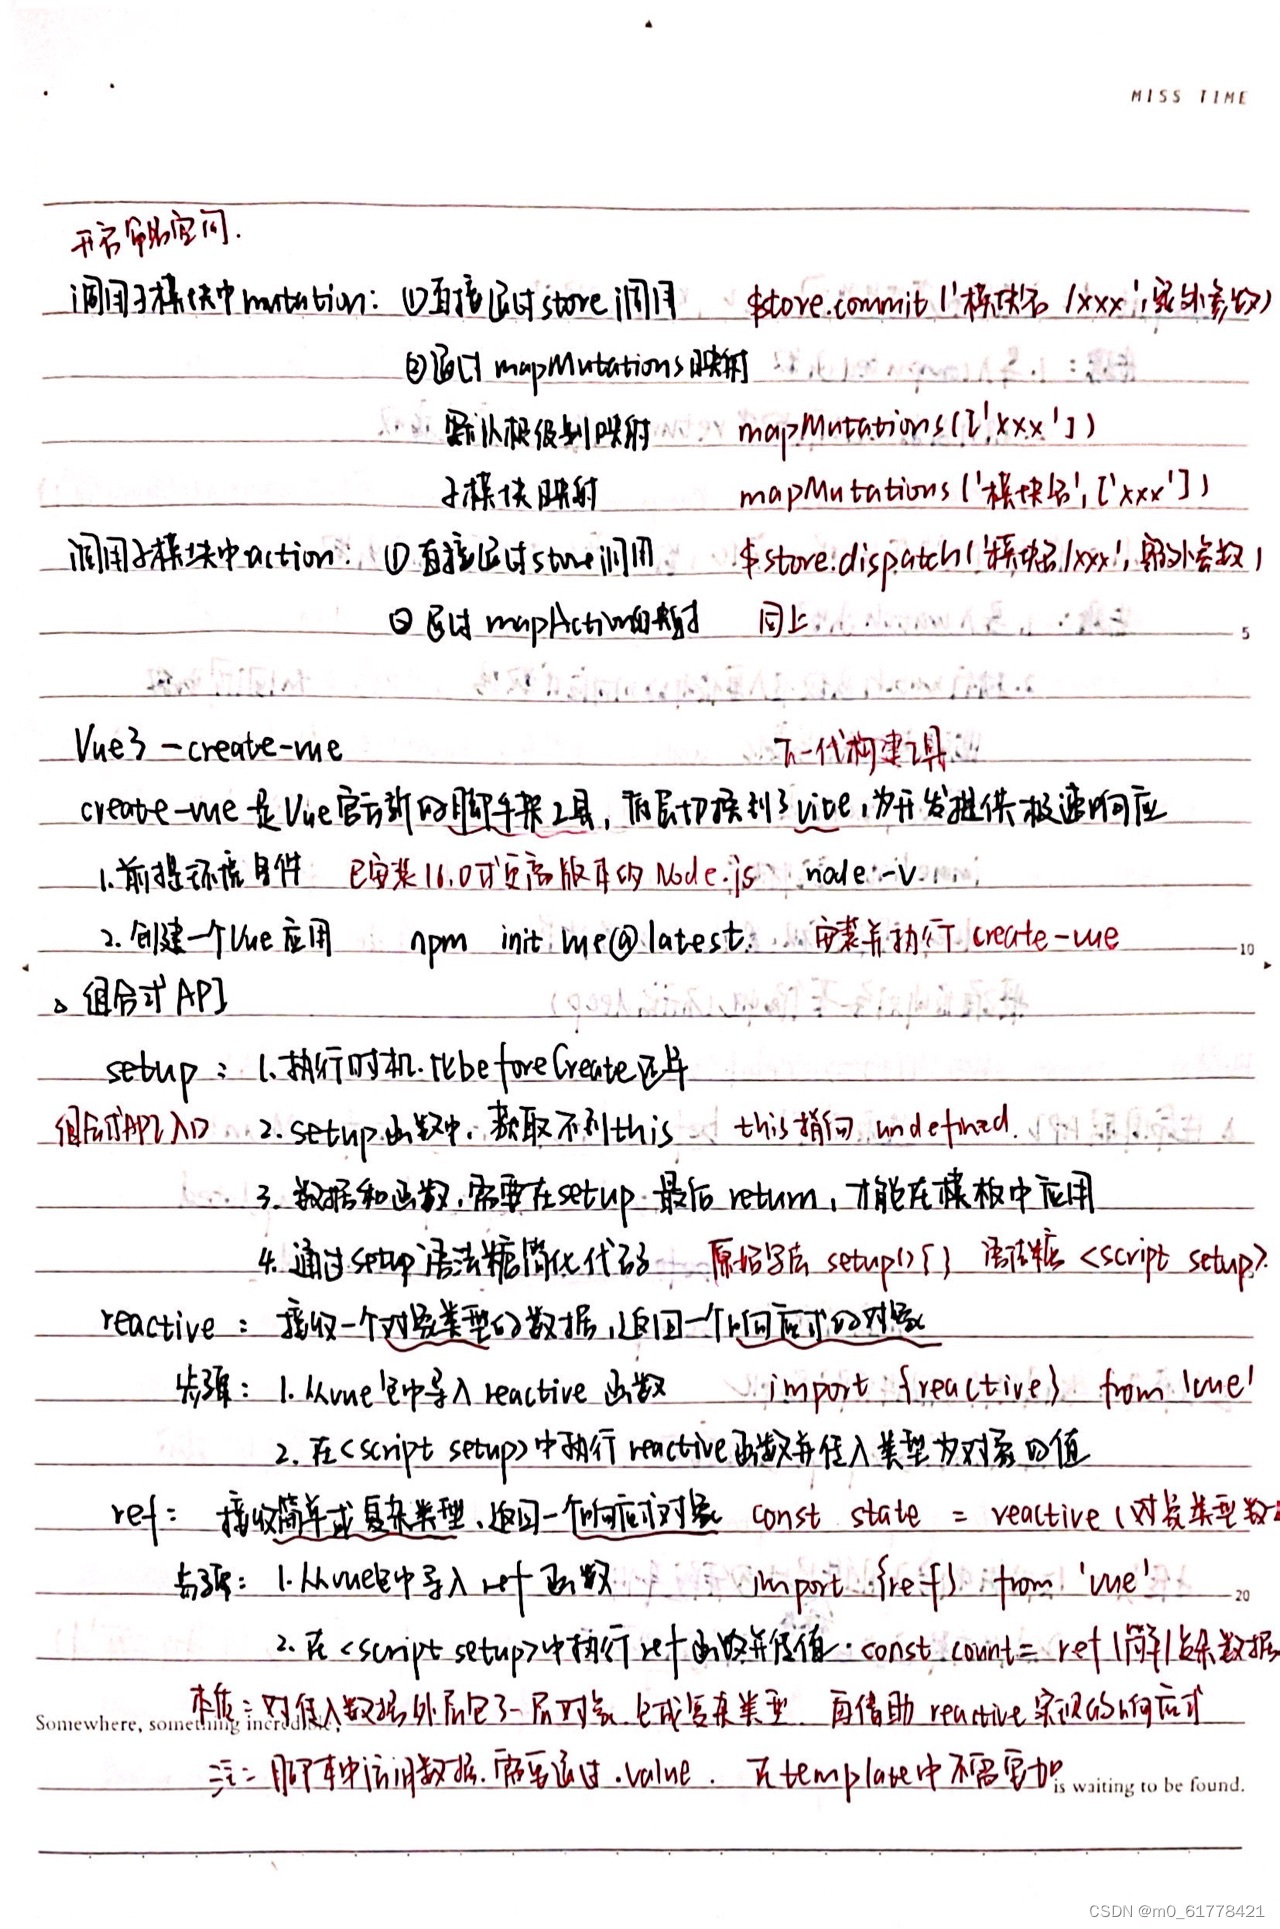 MISS TIME
开启命名空间.
调用子模块中mutation: ①直接通过store调用 $store.commit('模块名/xxx',额外参数)
②通过mapMutations映射
默认根级别映射 mapMutations(['xxx'])
子模块映射 mapMutations('模块名',['xxx'])
调用子模块中action: ①直接通过store调用 $store.dispatch('模块名/xxx',额外参数)
②通过mapAction的映射 同上
5
Vue3-create-vue 下一代构建工具
create-vue是Vue官方新的脚手架工具,底层切换到了vite,为开发提供极速响应
1.前提环境条件 已安装16.0或更高版本的Node.js node -v
2.创建一个Vue应用 npm init vue@latest. 安装并执行create-vue
10
组合式API
setup: 1.执行时机.比beforeCreate还早
组合式API入口 2.setup函数中,获取不到this this指向undefined.
3.数据和函数,需要在setup最后return,才能在模板中应用
4.通过setup语法糖简化代码 原始写法 setup(){} 语法糖 <script setup>
reactive: 接收一个对象类型的数据,返回一个响应式的对象
步骤: 1.从vue包中导入reactive函数 import {reactive} from 'vue'
2.在<script setup>中执行reactive函数并传入类型为对象的值
ref: 接收简单或复杂类型,返回一个响应式对象 const state = reactive(对象类型数
步骤: 1.从vue包中导入ref函数 import {ref} from 'vue'
20
2.在<script setup>中执行ref函数并传值. const count = ref(简单/复杂数据
本质:对传入数据外层包了一层对象.包成复杂类型.再借助reactive实现的响应式
Somewhere, something incredible,
注:脚本中访问数据.需要通过.value. 在template中不需要加
is waiting to be found.
CSDN @m0_61778421